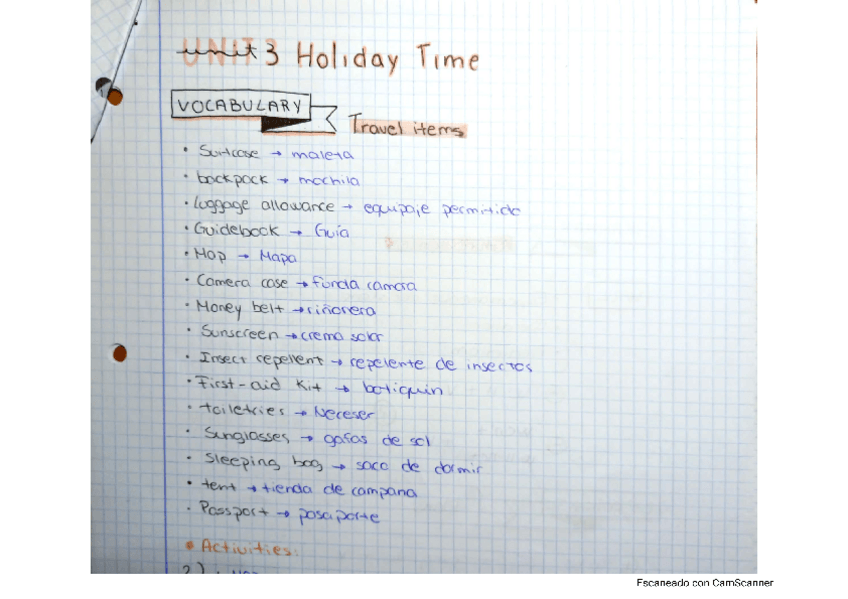 unit 3 Holiday Time
VOCABULARY
Travel items
• Suitcase → maleta
• backpack → mochila
• Luggage allowance → equipaje permitido
• Guidebook → Guía
• Map → Mapa
• Camera case → funda camara
• Money belt → riñonera
• Sunscreen → crema solar
• Insect repellent → repelente de insectos
• First-aid kit → botiquin
• toiletries → Neceser
• Sunglasses → gafas de sol
• Sleeping bag → saco de dormir
• tent → tienda de campana
• Passport → pasaporte
• Activities:
2)
Escaneado con CamScanner